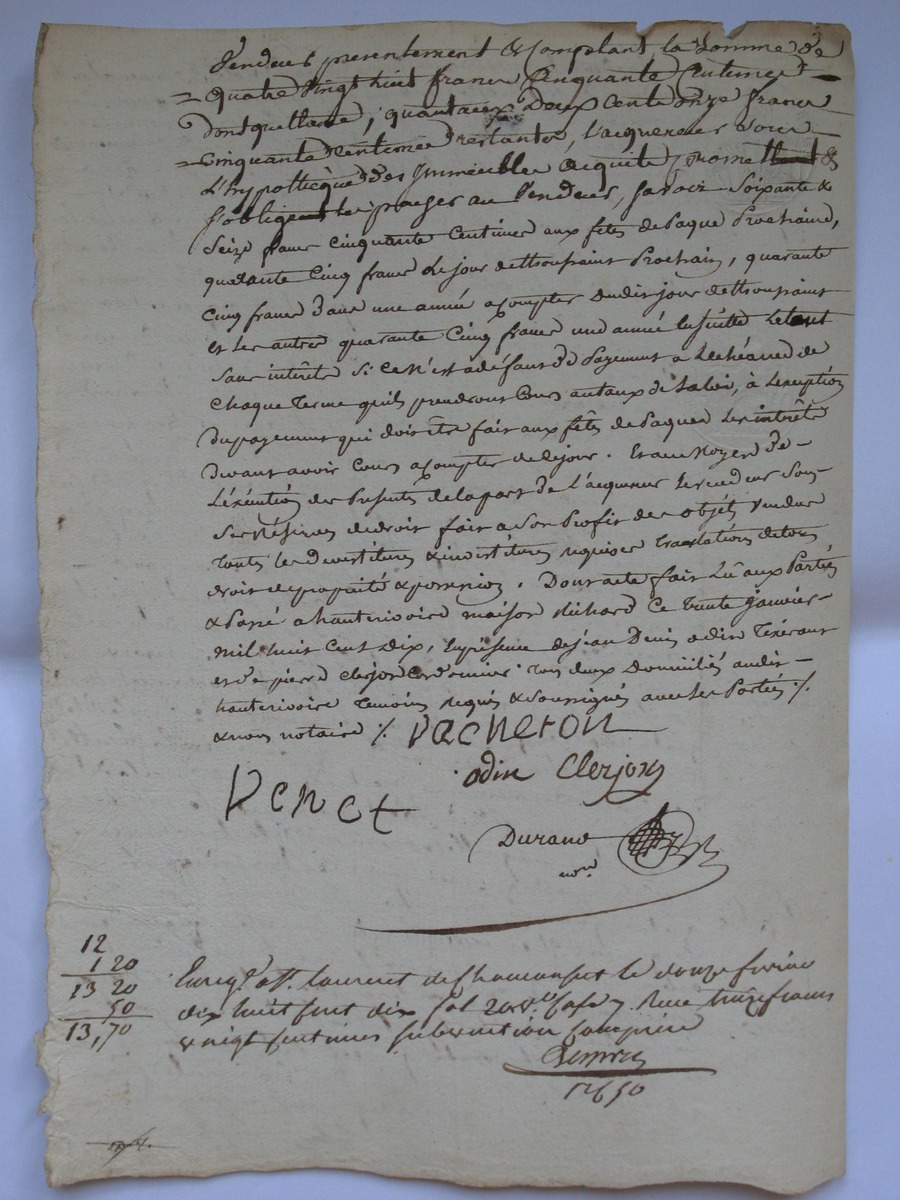 Vendeur presentement & Comptant la Somme de
= quatre Vingt huit francs Cinquante Centimes –
dont quittance, quant aux deux Cents onze francs
= Cinquante Centimes restantes, l'acquereur sous
L'hypotheque des Immeubles acquits promettent &
s'obligent les payer au Vendeur, savoir Soixante &
Seize francs cinquante Centimes aux fêtes de Paque Prochaine,
quarante Cinq francs Le jour de thoussaint Prochain, quarante
Cinq francs dans une année a Compter dudit jour de thoussaint
et les autres quarante Cinq francs une année ensuitte Le tout
Sans intérêts Si Ce N'est à défaut de Payement a Lechéance de
Chaque Terme quils prendront Cours au taux de La loi, à L'exception
Du payement qui doit être fait aux fêtes de Paques Les intérêts
Devant avoir Cours a Compter de Ce jour. Et au Moyen de –
L'éxécution des Présentes de la part de l'acquereur Le vendeur Sous
Ses Réserves de droit fait a Son Profit des objets vendus
Toutes les devestitures & investitures requises Translations de tous
droits de propriété & possession. Dont acte fait Lû aux Parties
& Passé a hauterivoire maison Richard Ce Trente Janvier –
Mil huit Cent Dix, En présence de Jean Denis odin Tixerant
et de pierre Clerjon Cordonnier Tous deux Domiciliés audit –
hauterivoire Temoins requis & Soussignés avec Les Parties ./.
& nous notaire ./. Vacheron
odin Clerjon
Venet
Durand
nore
12
1 20
13 20
50
13,70
Enregé. à St. laurent de Chamousset le douze fevrier
dix huit cent dix fol 20 vo. Case 7. Recu treize francs
& vingt centimes subvention Comprise
12650